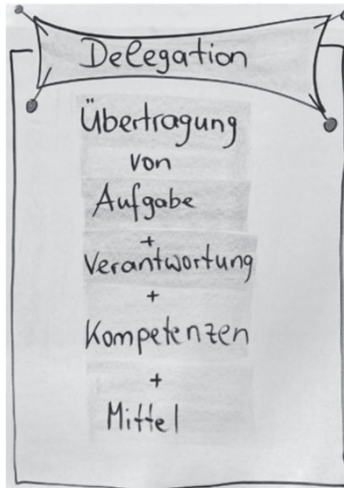 Delegation
Übertragung
von
Aufgabe
+
Verantwortung
+
Kompetenzen
+
Mittel